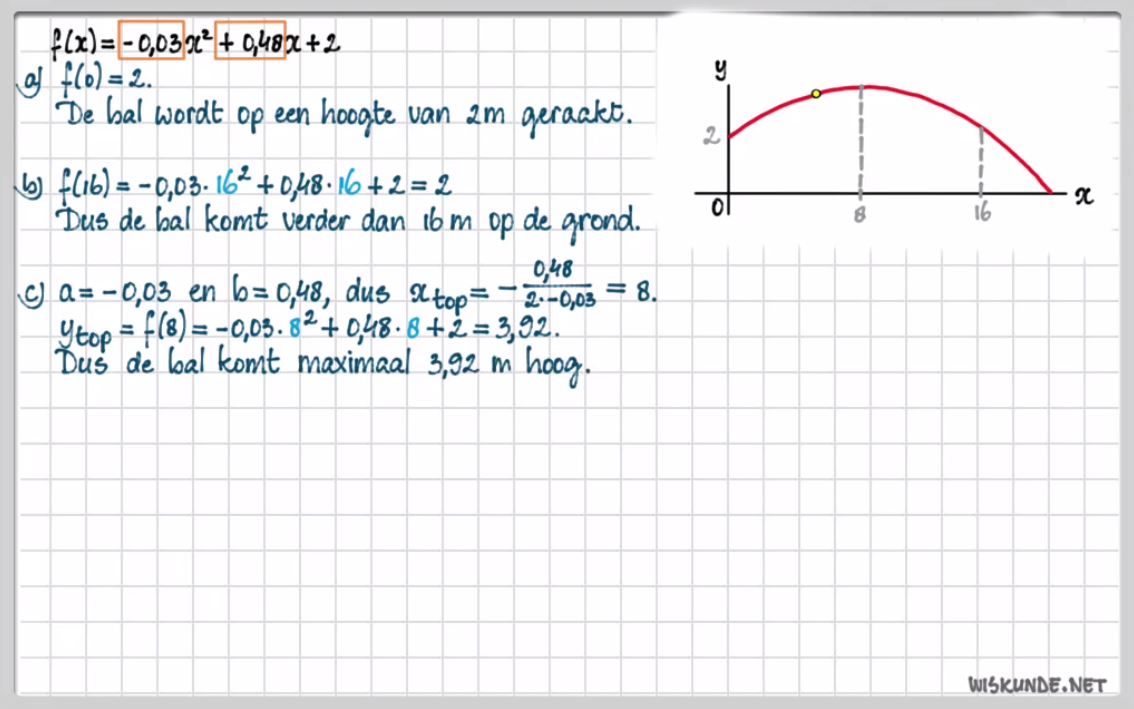 f(x) = -0,03x² + 0,48x + 2
a) f(0) = 2.
De bal wordt op een hoogte van 2m geraakt.
b) f(16) = -0,03 · 16² + 0,48 · 16 + 2 = 2
Dus de bal komt verder dan 16 m op de grond.
c) a = -0,03 en b = 0,48, dus xtop = - 0,48 / 2·-0,03 = 8.
ytop = f(8) = -0,03 · 8² + 0,48 · 8 + 2 = 3,92.
Dus de bal komt maximaal 3,92 m hoog.
y
2
0
8
16
x
WISKUNDE.NET